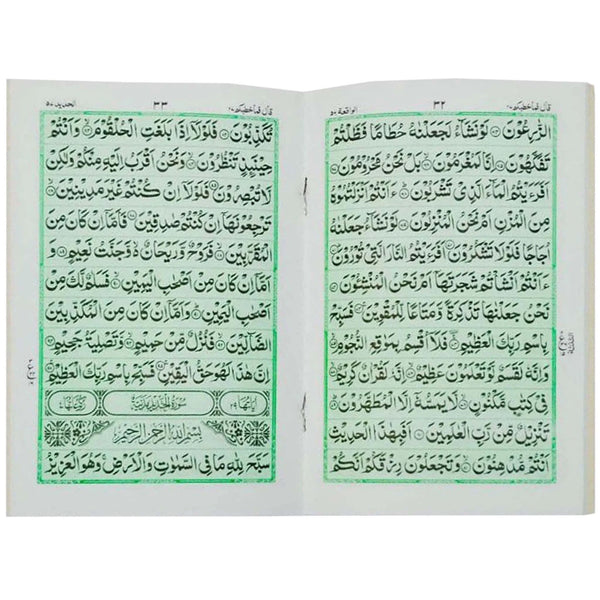 قال فما خطبكم ٢٧ ٣٢ الواقعة ٥٦
الزّٰرِعُوْنَ ۝ لَوْ نَشَآءُ لَجَعَلْنٰهُ حُطَامًا فَظَلْتُمْ
تَفَكَّهُوْنَ ۝ اِنَّا لَمُغْرَمُوْنَ ۝ بَلْ نَحْنُ مَحْرُوْمُوْنَ ۝
اَفَرَءَيْتُمُ الْمَآءَ الَّذِيْ تَشْرَبُوْنَ ۝ ءَاَنْتُمْ اَنْزَلْتُمُوْهُ
مِنَ الْمُزْنِ اَمْ نَحْنُ الْمُنْزِلُوْنَ ۝ لَوْ نَشَآءُ جَعَلْنٰهُ
اُجَاجًا فَلَوْلَا تَشْكُرُوْنَ ۝ اَفَرَءَيْتُمُ النَّارَ الَّتِيْ تُوْرُوْنَ ۝
ءَاَنْتُمْ اَنْشَاْتُمْ شَجَرَتَهَآ اَمْ نَحْنُ الْمُنْشِئُوْنَ ۝
نَحْنُ جَعَلْنٰهَا تَذْكِرَةً وَّمَتَاعًا لِّلْمُقْوِيْنَ ۝ فَسَبِّحْ
بِاسْمِ رَبِّكَ الْعَظِيْمِ ۝ فَلَآ اُقْسِمُ بِمَوٰقِعِ النُّجُوْمِ ۝
وَاِنَّهٗ لَقَسَمٌ لَّوْ تَعْلَمُوْنَ عَظِيْمٌ ۝ اِنَّهٗ لَقُرْاٰنٌ كَرِيْمٌ ۝
فِيْ كِتٰبٍ مَّكْنُوْنٍ ۝ لَّا يَمَسُّهٗٓ اِلَّا الْمُطَهَّرُوْنَ ۝
تَنْزِيْلٌ مِّنْ رَّبِّ الْعٰلَمِيْنَ ۝ اَفَبِهٰذَا الْحَدِيْثِ
اَنْتُمْ مُّدْهِنُوْنَ ۝ وَتَجْعَلُوْنَ رِزْقَكُمْ اَنَّكُمْ
قال فما خطبكم ٢٧ ٣٣ الحديد ٥٧
تُكَذِّبُوْنَ ۝ فَلَوْلَآ اِذَا بَلَغَتِ الْحُلْقُوْمَ ۝ وَاَنْتُمْ
حِيْنَئِذٍ تَنْظُرُوْنَ ۝ وَنَحْنُ اَقْرَبُ اِلَيْهِ مِنْكُمْ وَلٰكِنْ
لَّا تُبْصِرُوْنَ ۝ فَلَوْلَآ اِنْ كُنْتُمْ غَيْرَ مَدِيْنِيْنَ ۝
تَرْجِعُوْنَهَآ اِنْ كُنْتُمْ صٰدِقِيْنَ ۝ فَاَمَّآ اِنْ كَانَ مِنَ
الْمُقَرَّبِيْنَ ۝ فَرَوْحٌ وَّرَيْحَانٌ ۙ وَّجَنَّتُ نَعِيْمٍ ۝
وَاَمَّآ اِنْ كَانَ مِنْ اَصْحٰبِ الْيَمِيْنِ ۝ فَسَلٰمٌ لَّكَ مِنْ
اَصْحٰبِ الْيَمِيْنِ ۝ وَاَمَّآ اِنْ كَانَ مِنَ الْمُكَذِّبِيْنَ
الضَّآلِّيْنَ ۝ فَنُزُلٌ مِّنْ حَمِيْمٍ ۝ وَّتَصْلِيَةُ جَحِيْمٍ ۝
اِنَّ هٰذَا لَهُوَ حَقُّ الْيَقِيْنِ ۝ فَسَبِّحْ بِاسْمِ رَبِّكَ الْعَظِيْمِ ۝
اٰيَاتُهَا ٢٩ سُوْرَةُ الْحَدِيْدِ مَدَنِيَّةٌ
بِسْمِ اللهِ الرَّحْمٰنِ الرَّحِيْمِ
سَبَّحَ لِلّٰهِ مَا فِي السَّمٰوٰتِ وَالْاَرْضِ ۚ وَهُوَ الْعَزِيْزُ